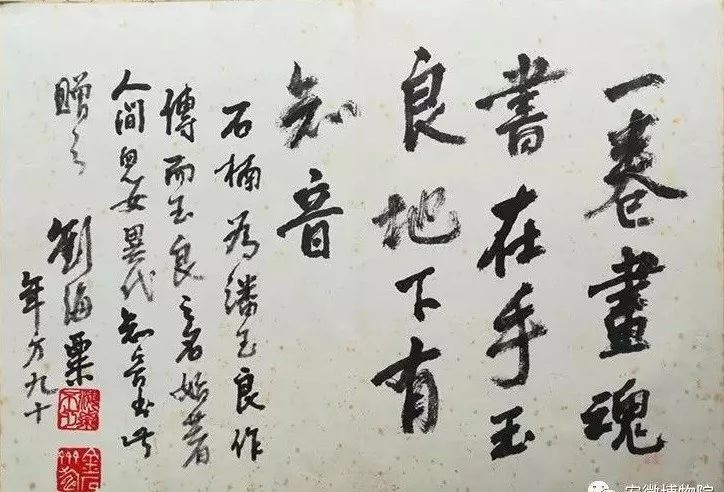 一卷畫魂
書在手玉
良地下有
知音
石楠為潘玉良作
傳而玉良之名始著
人间兒女異代知音书此
贈之
劉海粟
年方九十
安徽博物院